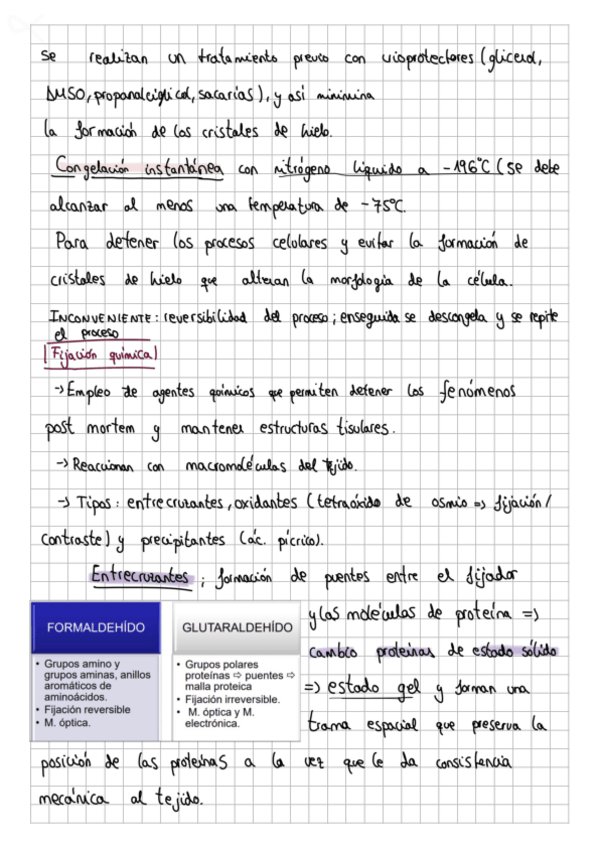 se realizan un tratamiento previo con crioprotectores (glicerol,
DMSO, propanoleiglicol, sacarías), y así minimina
la formación de los cristales de hielo.
Congelación instantánea con nitrógeno líquido a -196°C (se debe
alcanzar al menos una temperatura de -75°C.
Para detener los procesos celulares y evitar la formación de
cristales de hielo que alteran la morfología de la célula.
INCONVENIENTE: reversibilidad del proceso; enseguida se descongela y se repite
el proceso
Fijación química
-> Empleo de agentes químicos que permiten detener los fenómenos
post mortem y mantener estructuras tisulares.
-> Reaccionan con macromoléculas del tejido.
-> Tipos: entrecruzantes, oxidantes (tetraóxido de osmio => fijación/
contraste) y precipitantes (ác. pícrico).
Entrecruzantes; formación de puentes entre el fijador
y las moléculas de proteína =>
cambio proteínas de estado sólido
=> estado gel y forman una
trama espacial que preserva la
FORMALDEHÍDO
• Grupos amino y
grupos aminas, anillos
aromáticos de
aminoácidos.
• Fijación reversible
• M. óptica.
GLUTARALDEHÍDO
• Grupos polares
proteínas ⇨ puentes ⇨
malla proteica
• Fijación irreversible.
• M. óptica y M.
electrónica.
posición de las proteínas a la vez que le da consistencia
mecánica al tejido.